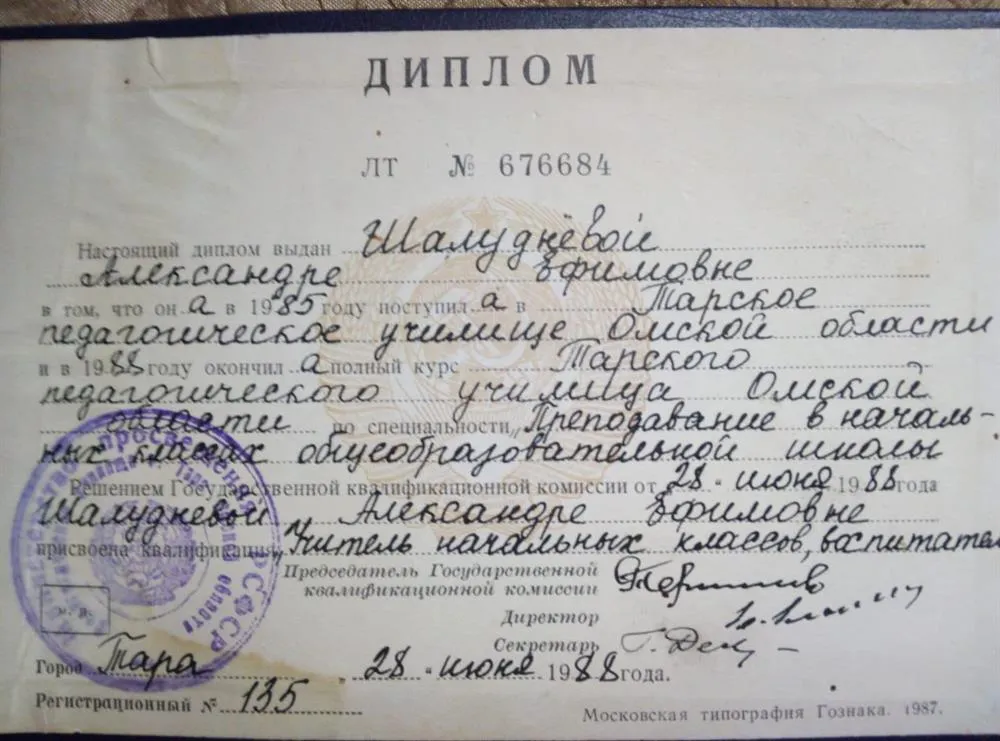 ДИПЛОМ
ЛТ № 676684
Настоящий диплом выдан Шалуднёвой
Александре Ефимовне
в том, что он а в 1985 году поступил а в Тарское
педагогическое училище Омской области
и в 1988 году окончил а полный курс Тарского
педагогического училища Омской
области по специальности „Преподавание в началь-
ных классах общеобразовательной школы
Решением Государственной квалификационной комиссии от 28 июня 1988 года
Шалудневой Александре Ефимовне
присвоена квалификация „Учитель начальных классов, воспитател
Председатель Государственной
квалификационной комиссии
Директор
Секретарь
Город Тара 28 июня 1988 года.
Регистрационный № 135
Московская типография Гознака. 1987.
просвещения РСФСР
м. п.